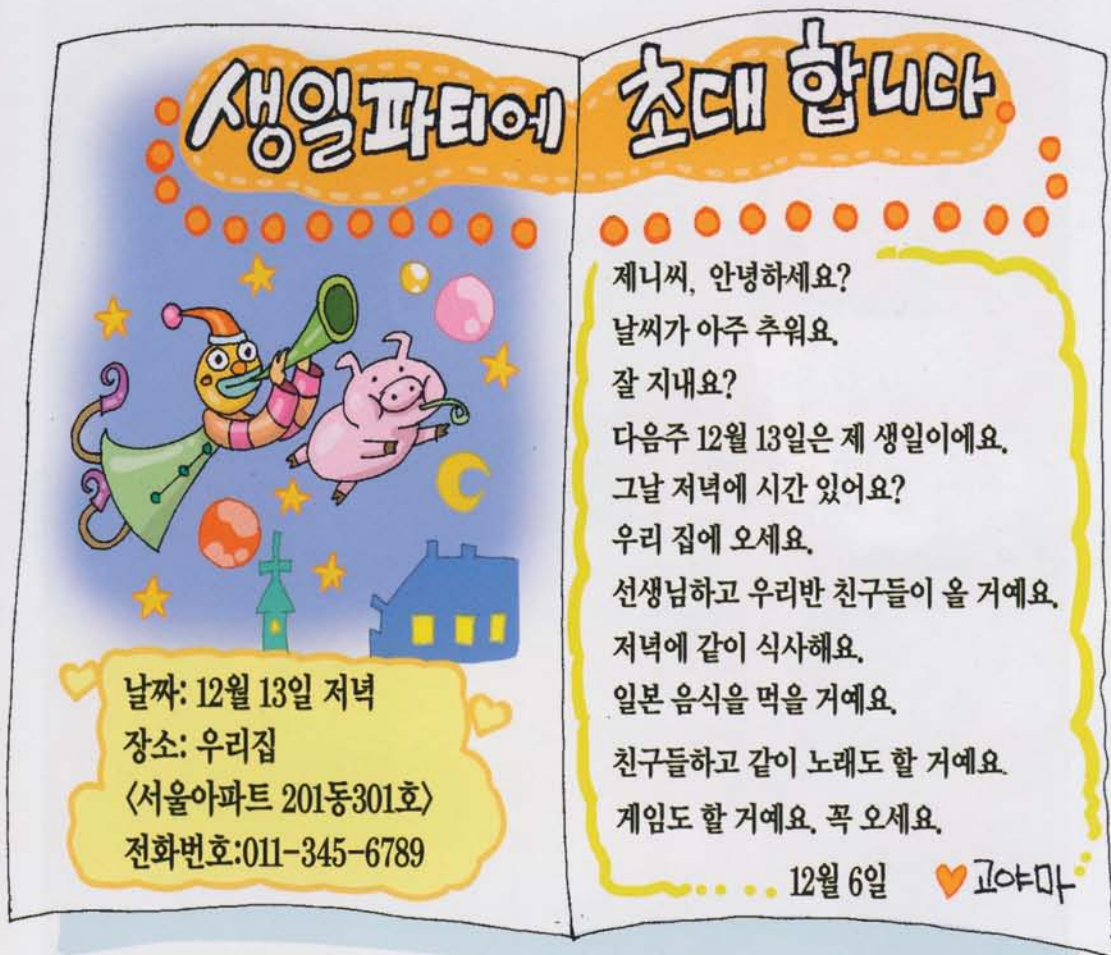 생일파티에 초대 합니다
날짜: 12월 13일 저녁
장소: 우리집
<서울아파트 201동301호>
전화번호:011-345-6789
제니씨, 안녕하세요?
날씨가 아주 추워요.
잘 지내요?
다음주 12월 13일은 제 생일이에요.
그날 저녁에 시간 있어요?
우리 집에 오세요.
선생님하고 우리반 친구들이 올 거예요.
저녁에 같이 식사해요.
일본 음식을 먹을 거예요.
친구들하고 같이 노래도 할 거예요.
게임도 할 거예요. 꼭 오세요.
12월 6일 고야마